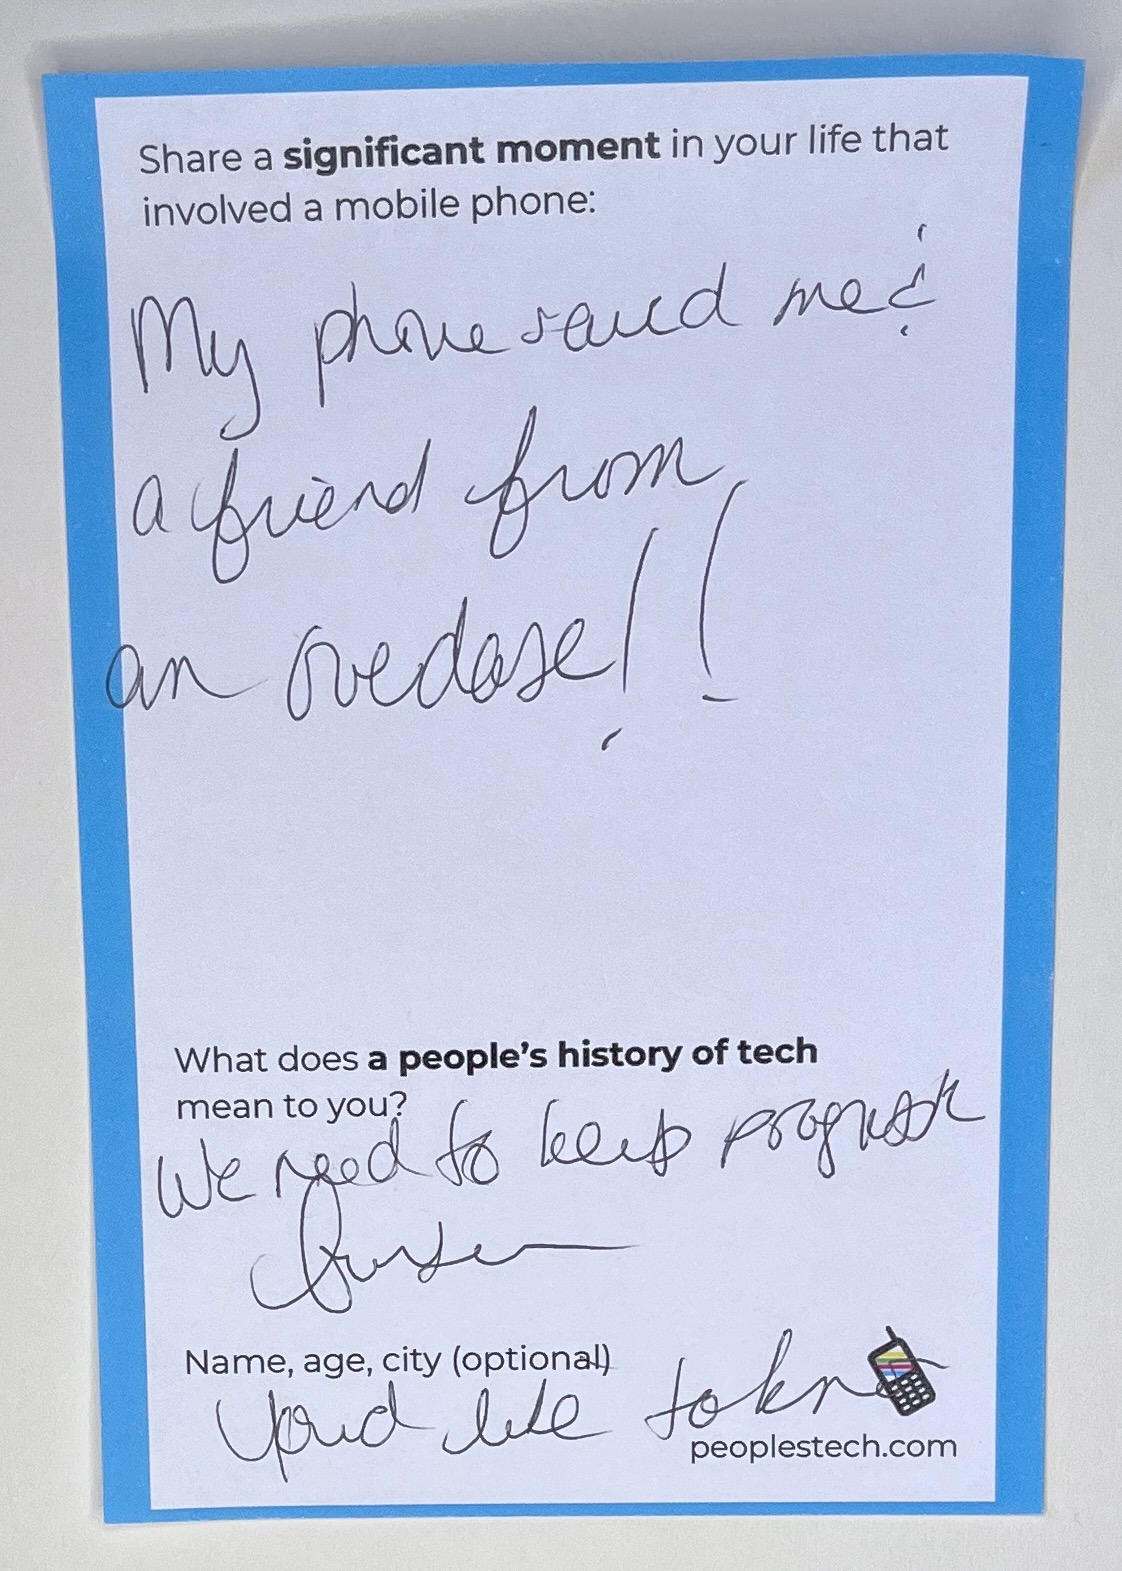 Share a significant moment in your life that
involved a mobile phone:
My phone saved me &
a friend from
an ovedose!!
What does a people's history of tech
mean to you?
We need to keep
Name, age, city (optional)
Youd like to kno
peoplestech.com